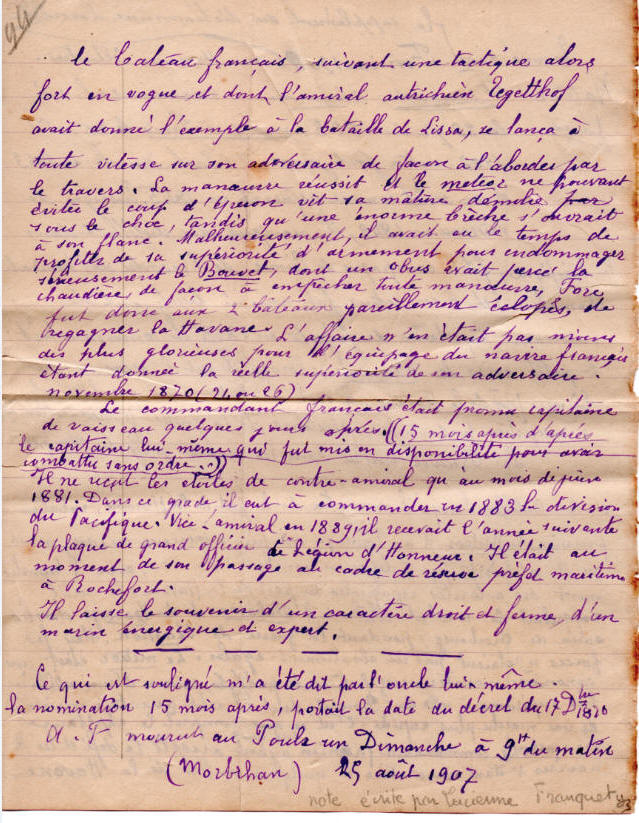 94
le bateau français, suivant une tactique alors
fort en vogue et dont l'amiral autrichien Tegetthof
avait donné l'exemple à la bataille de Lissa, se lança à
toute vitesse sur son adversaire de façon à l'aborder par
le travers. La manœuvre réussit et le meteor ne pouvant
éviter le coup d'éperon vit sa mâture démolie par
sous le choc, tandis qu'une énorme brèche s'ouvrait
à son flanc. Malheureusement, il avait eu le temps de
profiter de sa supériorité d'armement pour endommager
sérieusement le Bouvet, dont un obus avait percé la
chaudière de façon à empêcher toute manœuvre, Force
fut donc aux 2 bateaux pareillement éclopés, de
regagner la Havane. L'affaire n'en était pas moins
des plus glorieuses pour l'équipage du navire français
étant donnée la réelle supériorité de son adversaire.
novembre 1870 (24 ou 26)
Le commandant français était promu capitaine
de vaisseau quelques jours après. ((15 mois après d'après
le capitaine lui-même qui fut mis en disponibilité pour avoir
combattu sans ordre...))
Il ne reçut les étoiles de contre-amiral qu'au mois de
1881. Dans ce grade, il eut à commander en 1883 la division
du Pacifique. Vice-amiral en 1889, il recevait l'année suivante
la plaque de grand officier de Légion d'Honneur. Il était au
moment de son passage au cadre de réserve préfet maritime
à Rochefort.
Il laisse le souvenir d'un caractère droit et ferme, d'un
marin énergique et expert.
Ce qui est souligné m'a été dit par l'oncle lui-même.
la nomination 15 mois après, portait la date du décret du 17 Dbre 1870
A. F mourut au Poulz un Dimanche à 9h du matin
(Morbihan) 25 août 1907
note écrite par Lucienne Franquet